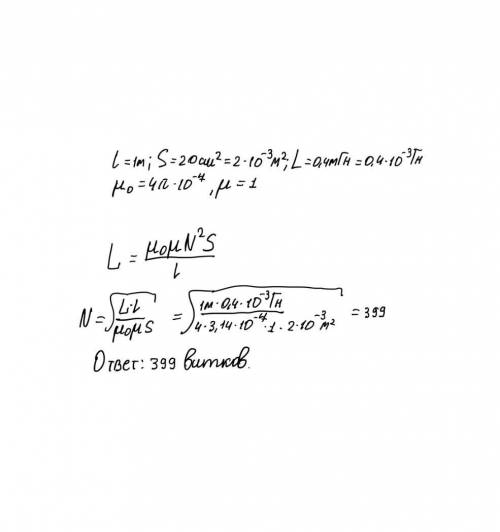 l = 1м; S = 20 см² = 2·10⁻³ м²; L = 0,4 мГн = 0,4·10⁻³ Гн
μ₀ = 4π·10⁻⁷, μ = 1
L = μ₀μN²S / l
N = √(L·l / μ₀μS) = √(1м·0,4·10⁻³ Гн / 4·3,14·10⁻⁷·1·2·10⁻³ м²) = 399
Ответ: 399 витков.